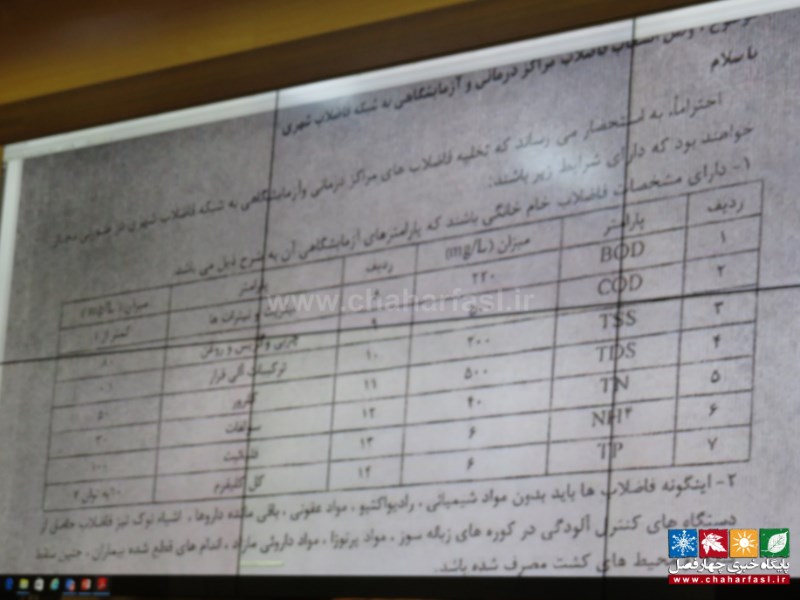 موضوع: وصل انشعاب فاضلاب مراکز درمانی و آزمایشگاهی به شبکه فاضلاب شهری
با سلام
احتراماً، به استحضار می رساند که تخلیه فاضلاب های مراکز درمانی و آزمایشگاهی به شبکه فاضلاب شهری در صورتی مجاز
خواهند بود که دارای شرایط زیر باشند:
۱- دارای مشخصات فاضلاب خام خانگی باشند که پارامترهای آزمایشگاهی آن به شرح ذیل می باشد
ردیف پارامتر میزان (mg/L) ردیف پارامتر میزان (mg/L)
۱ BOD ۲۲۰ ۸ نیتریت و نیترات ها کمتر از ۱
۲ COD ۹ چربی و گریس و روغن
۳ TSS ۲۰۰ ۱۰ ترکیبات آلی فرار
۴ TDS ۵۰۰ ۱۱ کلرور ۵۰
۵ TN ۴۰ ۱۲ سولفات ۳۰
۶ NH۴ ۶ ۱۳ قلیائیت ۱۰۰
۷ TP ۶ ۱۴ کل کلیفرم ۱۰ به توان ۷
۲- اینگونه فاضلاب ها باید بدون مواد شیمیائی، رادیواکتیو، مواد عفونی، باقی مانده داروها، اشیاء نوک تیز فاضلاب حاصل از
دستگاه های کنترل آلودگی در کوره های زباله سوز، مواد پرتوزا، مواد داروئی مازاد، اندام های قطع شده بیماران، جنین سقط
محیط های کشت مصرف شده باشد.
www.chaharfasl.ir
پایگاه خبری چهارفصل
www.chaharfasl.ir